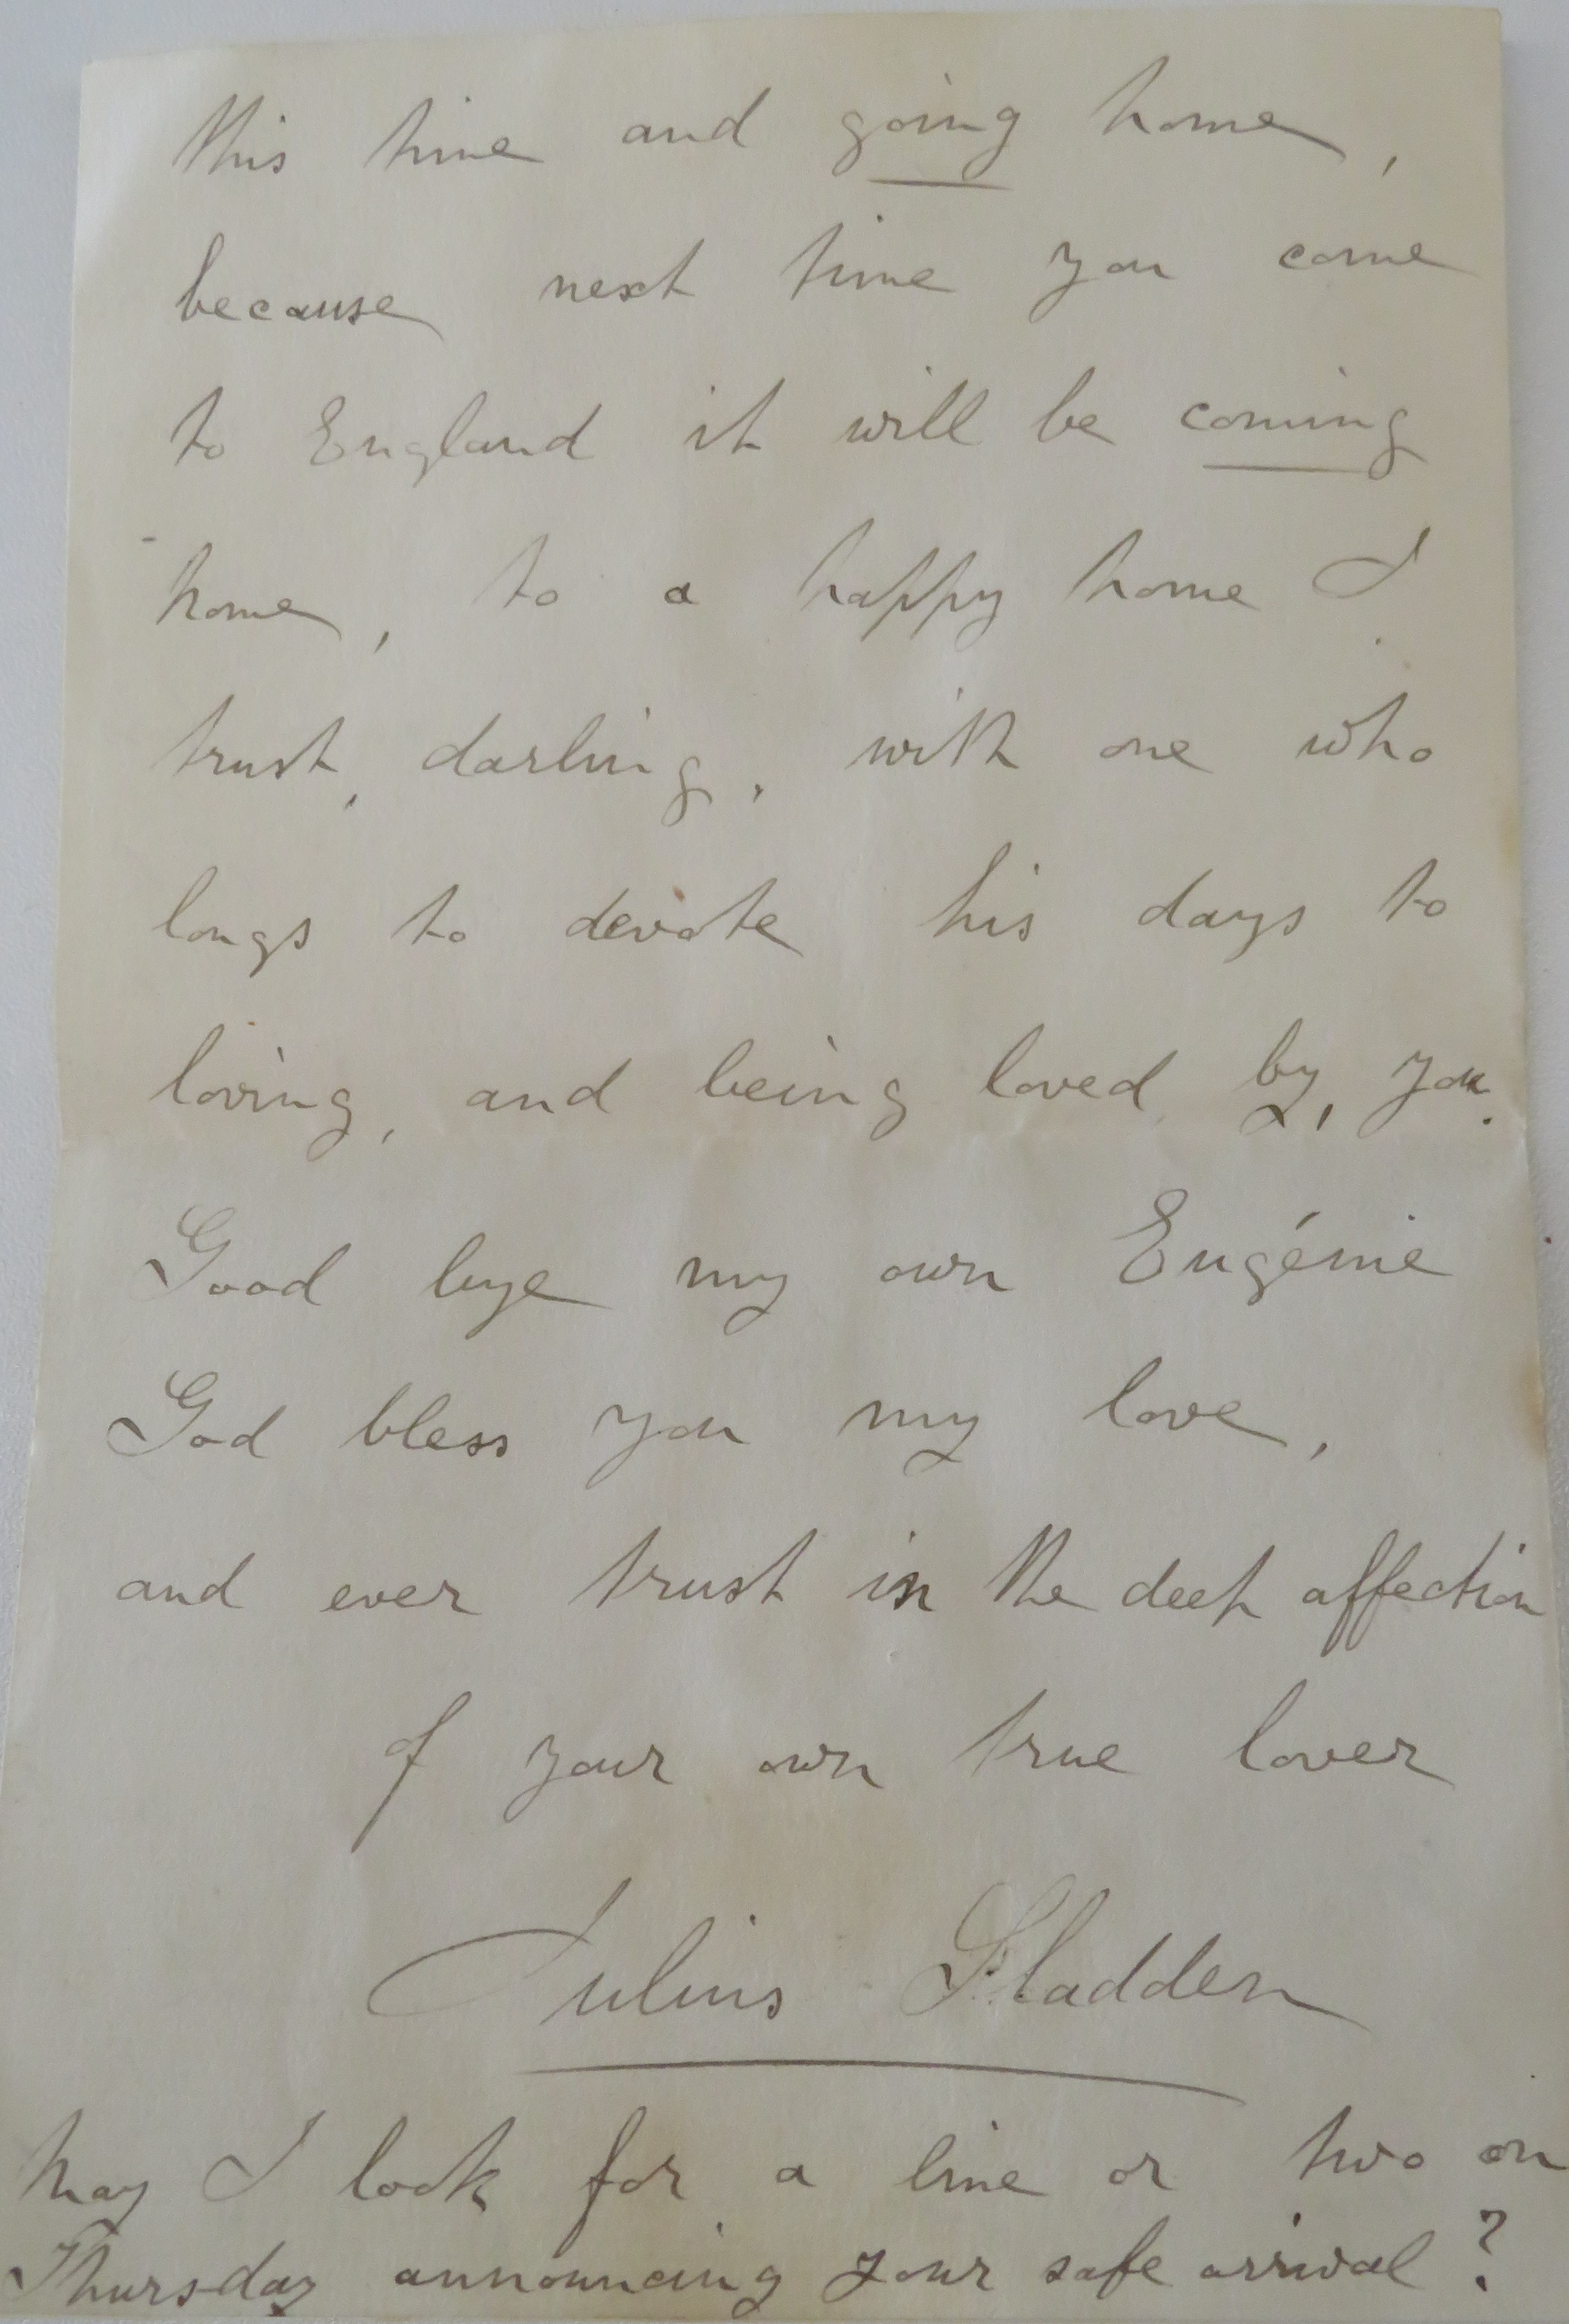 this time and going home,
because next time you come
to England it will be coming
home, to a happy home I
trust, darling, with one who
longs to devote his days to
loving, and being loved by, you.
Good bye my own Eugénie
God bless you my love,
and ever trust in the deep affection
of your own true lover
Julius Sladden
May I look for a line or two on
Thursday announcing your safe arrival?